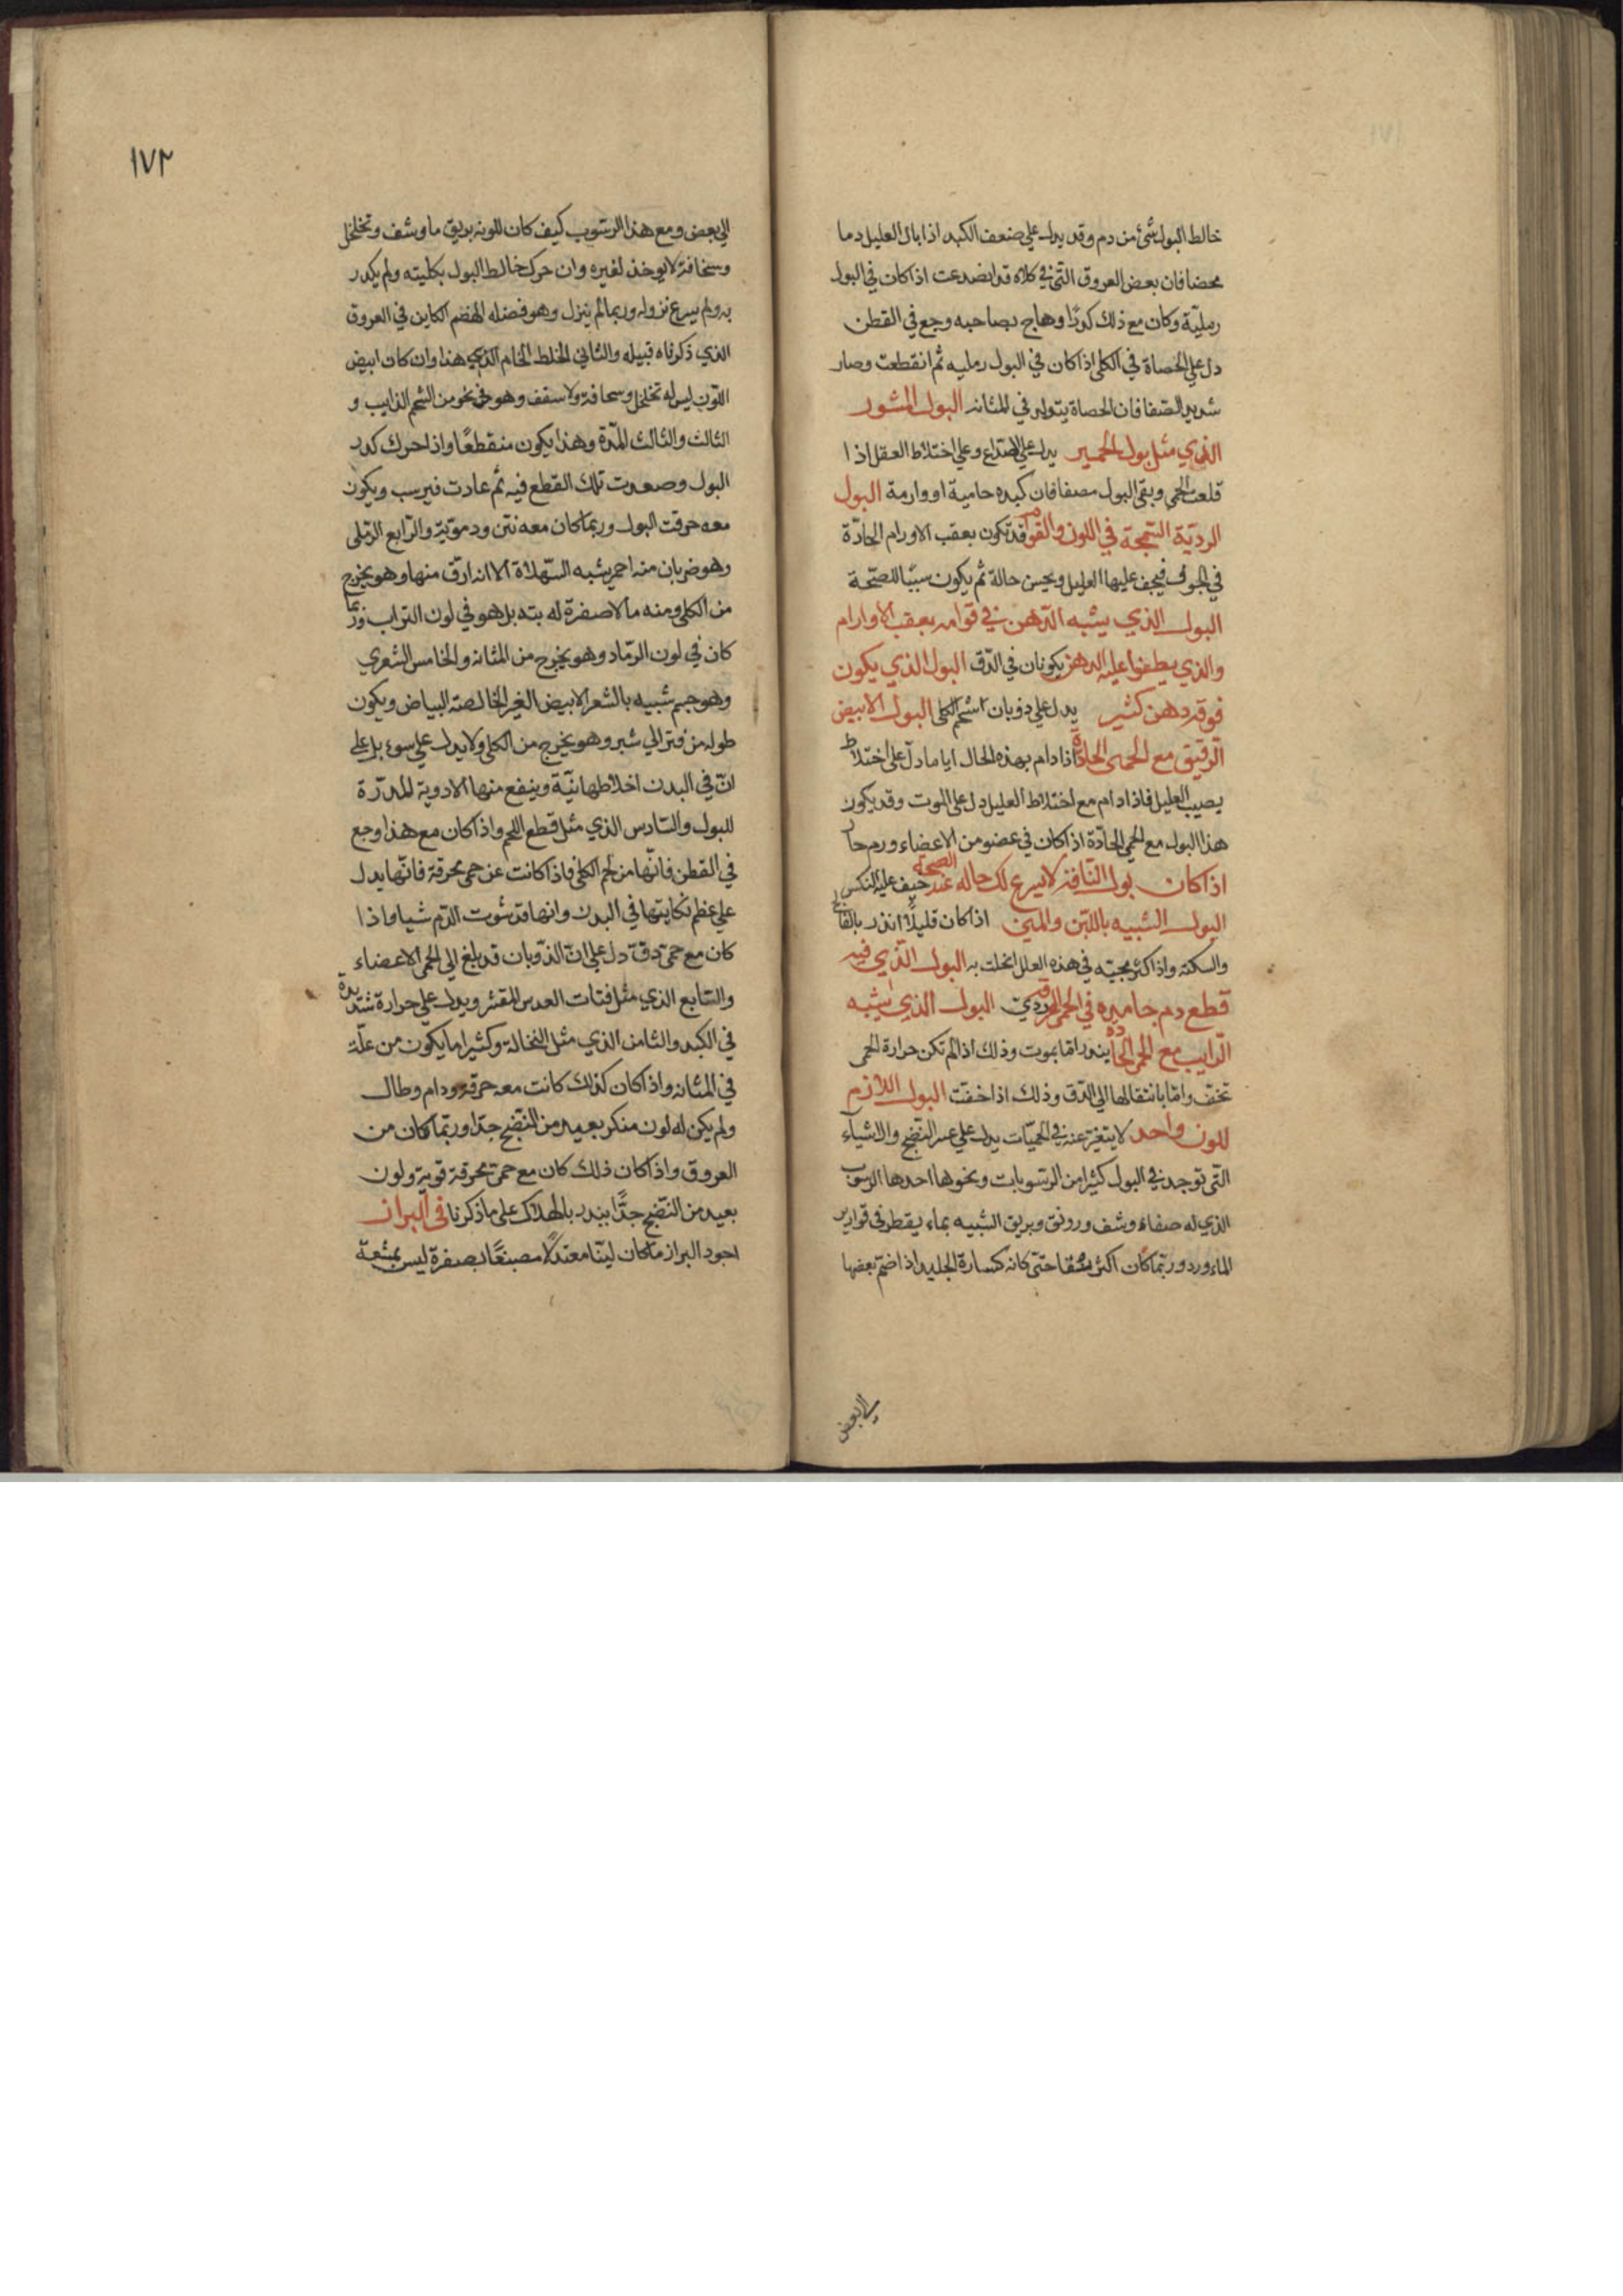 خالط البول شئ من دم وقد يدل علي ضعف الكبد اذا بال العليل دما
محضا فان بعض العروق التي في كلاه قد انصدعت اذا كان في البول
رملية وكان مع ذلك كدرا وهاج بصاحبه وجع في القطن
دل علي الحصاة في الكلي اذا كان في البول رمليه ثم انقطعت وصار
شديد الصفا فان الحصاة يتولد في المثانه البول المشور
الذي مثل بول الحمير يدل علي الصداع وعلي اختلاط العقل اذا
قلعت الحمي وبقي البول مصفا فان كبده حامية او وارمة البول
الردية السمجة في اللون والقوام قد تكون بعقب الاورام الحادّة
في الجوف فيجف عليها العليل ويحسن حالة ثم يكون سببا للصحة
البول الذي يشبه الدهن في قوامه بعقب الاورام
والذي يطفوا عليه الدهن يكونان في الدق البول الذي يكون
فوقه دهن كثير يدل علي ذوبان شحم الكلي البول الابيض
الرقيق مع الحمي الحادة اذا دام بهذه الحال اياما دل علي اختلاط
يصيب العليل فاذا دام مع اختلاط العليل دل علي الموت وقد يكون
هذا البول مع الحمي الحادّة اذا كان في عضو من الاعضاء ورم حار
اذا كان بول الناقة لا يسرع لك حاله عند الصحة خيف عليه النكس
البول الشبيه باللبن والمني اذا كان قليلاً انذر بالفالج
والسكتة واذا كثر مجيّه في هذه العلل انحلت به البول الذي فيه
قطع دم جامده في الحمي المحرقة ردي البول الذي يشبه
الرايب مع الحمي الحادة ينذر اما بموت وذلك اذا لم تكن حرارة الحمي
تخف واما بانتقالها الي الدق وذلك اذا خفت البول اللازم
للون واحد لا يتغير عنه في الحميّات يدل علي عسر النضج والاشياء
التي توجد في البول كثيرا من الرسوبات ونحوها احدها الرسوب
الذي له صفاء وشف ورونق وبريق الشبيه بماء يقطر في قوارير
الماء ورد وربما كان اكثر شفا حتى كانه كسارة الجليد اذا اضم بعضها
الي بعض
١٧٢
الي بعض ومع هذا الرسوب كيف كان للونه بريق ما وشف وتخلخل
وسخافة لا يوخذ لغيره وان حرك خالط البول بكليته ولم يكدر
به ولم يسرع نزوله وربما لم ينزل وهو فضله الهضم الكاين في العروق
الذي ذكرناه قبيله والثاني الخلط الخام الذي هذا وان كان ابيض
اللون ليس له تخلخل وسحافة ولا سقف وهو في نحو من الشحم الذايب و
الثالث والثالث المدّة وهذا يكون منقطعًا واذا حرك كدر
البول وصعدت تلك القطع فيه ثم عادت فيرسب ويكون
معه حرقت البول وربما كان معه نتن ودمويّة والرابع الرملي
وهو ضربان منه احمر يشبه السهلاة الا انه ارق منها وهو يخرج
من الكلي ومنه ما لا صفرة له بته بل هو في لون التراب وربما
كان في لون الرماد وهو يخرج من المثانه والخامس الشعري
وهو جسم شبيه بالشعر الابيض الغير الخالصة البياض ويكون
طوله من فتر الي شبر وهو يخرج من الكلي ولا يدل علي سوء بل علي
ان في البدن اخلاطها نيّة وينفع منها الادوية المدرّة
للبول والسادس الذي مثل قطع اللحم واذا كان مع هذا وجع
في القطن فانها من لحم الكلي فاذا كانت عن حمي محرقة فانها يدل
علي عظم نكايتها في البدن وانها قد شوت الدم شيا واذا
كان مع حمي دق دل علي ان الذوبان قد بلغ الي الحمي الاعضاء
والسابع الذي مثل فتات العدس المقشر ويدل علي حرارة شديدة
في الكبد والثامن الذي مثل النخالة وكثيرا ما يكون من علّة
في المثانه واذا كان كذلك كانت معه حرقة ودام وطال
ولم يكن له لون منكر بعيد من النضج جدّا وربما كان من
العروق واذا كان ذلك كان مع حمي محرقة قوية ولون
بعيد من النضج جدًا ينذر بالهلاك علي ما ذكرنا في البراز
اجود البراز ما كان لينا معتدلا مصبغًا بصفرة ليس بمشبعة